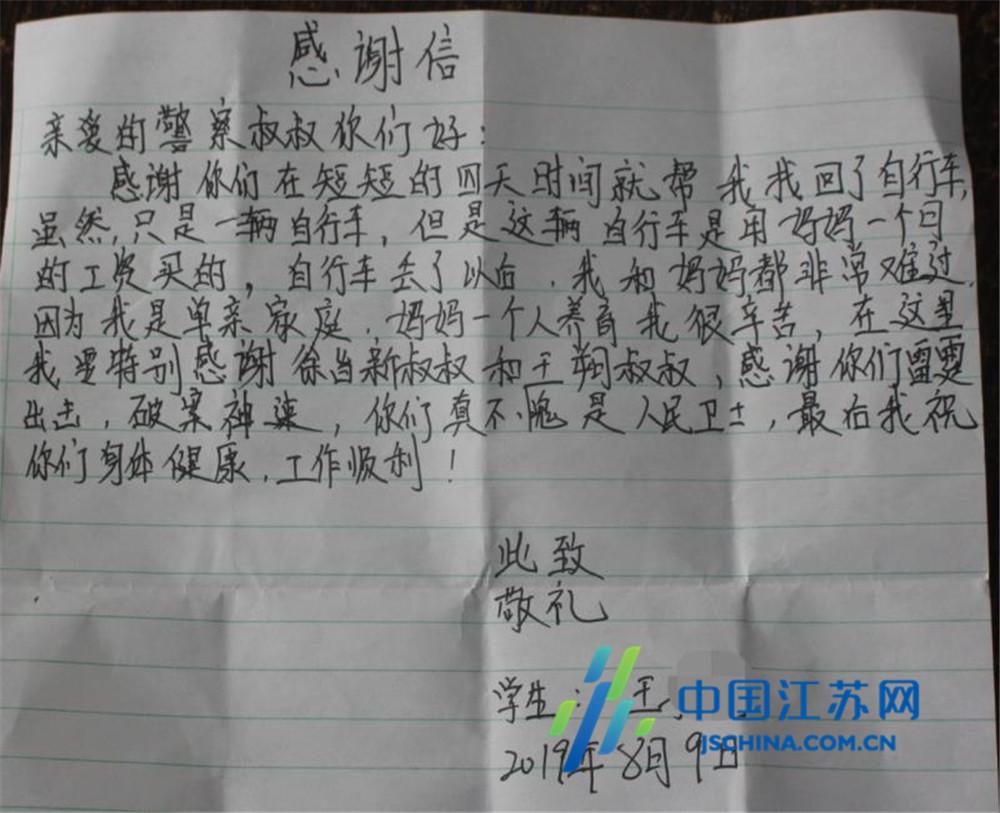 感谢信
亲爱的警察叔叔你们好：
感谢你们在短短的四天时间就帮我找回了自行车，
虽然，只是一辆自行车，但是这辆自行车是用妈妈一个月
的工资买的，自行车丢了以后，我和妈妈都非常难过，
因为我是单亲家庭，妈妈一个人养育我很辛苦，在这里
我要特别感谢徐当新叔叔和王朔叔叔，感谢你们雷霆
出击，破案神速，你们真不愧是人民卫士，最后我祝
你们身体健康，工作顺利！
此致
敬礼
学生：王
2019年8月9日
中国江苏网
JSCHINA.COM.CN